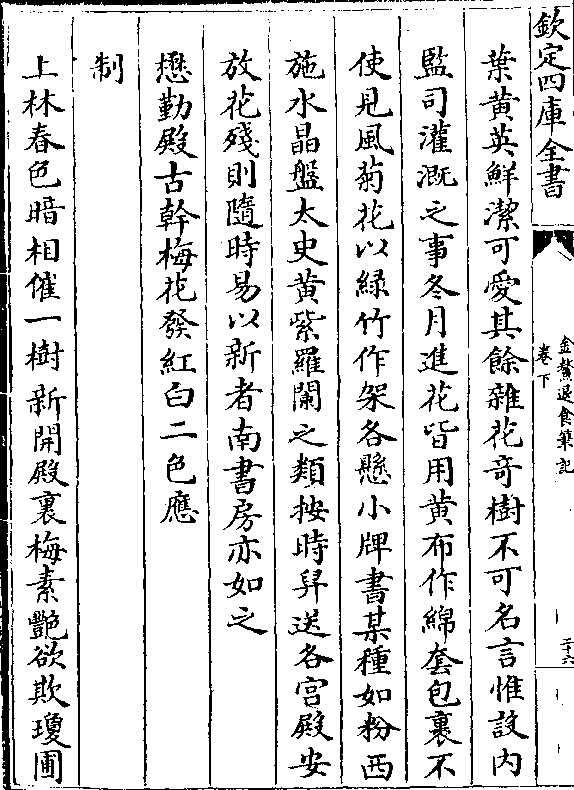 欽定四庫全書
金鰲退食筆記
卷下
二十六
葉黄英鮮潔可愛其餘雜花竒樹不可名言惟設内
監司灌溉之事冬月進花皆用黄布作綿套包裹不
使見風菊花以緑竹作架各懸小牌書某種如粉西
施水晶盤太史黄紫羅闌之類按時舁送各宫殿安
放花殘則隨時易以新者南書房亦如之
懋勤殿古幹梅花發紅白二色應
制
上林春色暗相催一樹新開殿裏梅素艷欲欺瓊圃